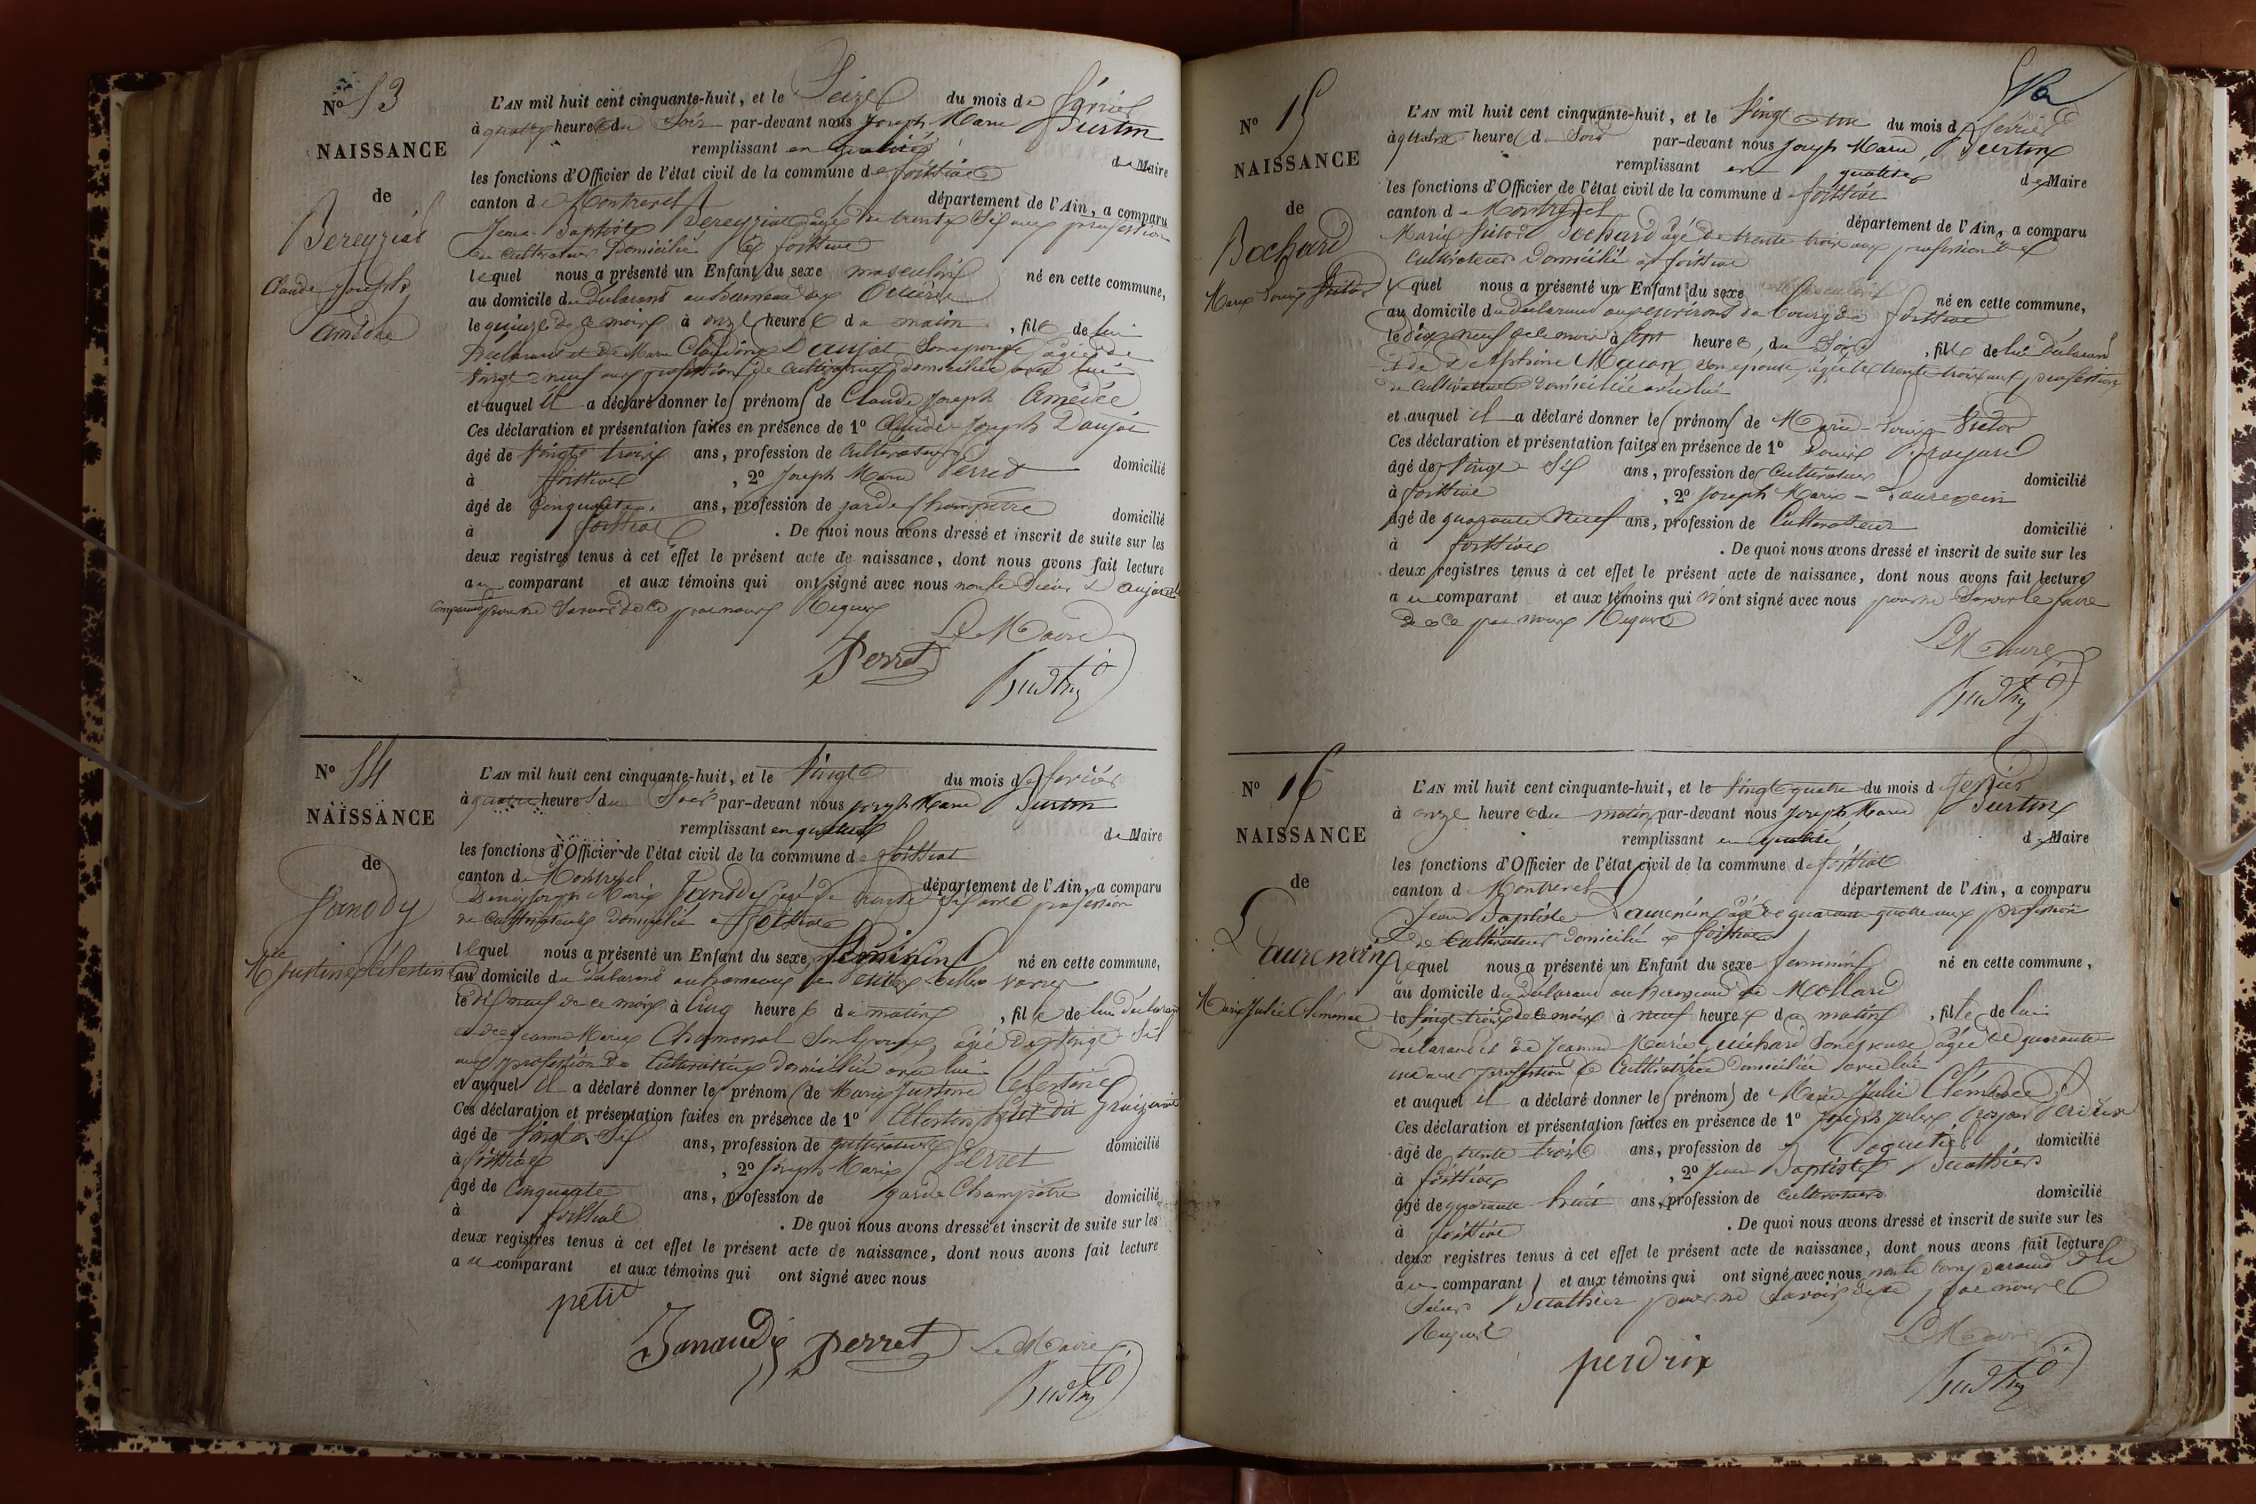 N° 13
NAISSANCE
de
Bereyziat
Claude Joseph
Amédée
L'AN mil huit cent cinquante-huit, et le Seize du mois de février
à quatre heures du Soir par-devant nous Joseph Marie Burtin
remplissant en qualité de Maire
les fonctions d'Officier de l'état civil de la commune de foissiat
canton de Montrevel département de l'Ain, a comparu
Jean Baptiste Bereyziat âgé de trente Six ans profession
de cultivateur Domicilié à foissiat
lequel nous a présenté un Enfant du sexe masculin né en cette commune,
au domicile du déclarant au hameau
le quinze de ce mois à onze heures du matin, fils de lui
déclarant et de Marie Claudine Daujat Son épouse âgée de
vingt neuf ans profession de cultivatrice domiciliée avec lui
et auquel il a déclaré donner les prénoms de Claude Joseph Amédée
Ces déclaration et présentation faites en présence de 1° Claude Joseph Daujat
âgé de vingt trois ans, profession de cultivateur domicilié
à foissiat, 2° Joseph Marie Perret
âgé de Cinquante ans, profession de garde champêtre domicilié
à foissiat. De quoi nous avons dressé et inscrit de suite sur les
deux registres tenus à cet effet le présent acte de naissance, dont nous avons fait lecture
au comparant et aux témoins qui ont signé avec nous non le Sieur Daujat
comparant pour ne Savoir de ce par nous Requis
Le Maire
Perret
Burtin
N° 14
NAISSANCE
de
Janody
Mie Justine Célestine
L'AN mil huit cent cinquante-huit, et le vingt du mois de février
à quatre heures du Soir par-devant nous Joseph Marie Burtin
remplissant en qualité de Maire
les fonctions d'Officier de l'état civil de la commune de foissiat
canton de Montrevel département de l'Ain, a comparu
Denis Joseph Marie Janody âgé de trente Six ans profession
de cultivateur domicilié à foissiat
lequel nous a présenté un Enfant du sexe féminin né en cette commune,
au domicile du déclarant au hameau de
le dix neuf de ce mois à Cinq heures du matin, fille de lui déclarant
et de Jeanne Marie Chamonal Son épouse, âgée de vingt Six
ans profession de Cultivatrice domiciliée avec lui
et auquel il a déclaré donner les prénoms de Marie Justine Célestine
Ces déclaration et présentation faites en présence de 1° Célestin Petit dit
âgé de vingt Six ans, profession de cultivateur domicilié
à foissiat, 2° Joseph Marie Perret
âgé de Cinquante ans, profession de garde Champêtre domicilié
à foissiat. De quoi nous avons dressé et inscrit de suite sur les
deux registres tenus à cet effet le présent acte de naissance, dont nous avons fait lecture
au comparant et aux témoins qui ont signé avec nous
petit
Janaudy perret Le Maire
Burtin
N° 15
NAISSANCE
de
Bochard
Marie Louis Victor
L'AN mil huit cent cinquante-huit, et le vingt et un du mois de février
à quatre heures du Soir par-devant nous Joseph Marie Burtin
remplissant en qualité de Maire
les fonctions d'Officier de l'état civil de la commune de foissiat
canton de Montrevel département de l'Ain, a comparu
Marie Victor Bochard âgé de trente trois ans profession de
cultivateur domicilié à foissiat
lequel nous a présenté un Enfant du sexe masculin né en cette commune,
au domicile du déclarant aux environs du bourg de foissiat
le dix neuf de ce mois à sept heures, du Soir, fils de lui déclarant
et de Delphine Mason son épouse âgée de trente trois ans profession
de cultivatrice domiciliée avec lui
et auquel il a déclaré donner les prénoms de Marie Louis Victor
Ces déclaration et présentation faites en présence de 1° Louis Broyard
âgé de vingt Six ans, profession de Cultivateur domicilié
à foissiat, 2° Joseph Marie Laurencin
âgé de quarante neuf ans, profession de Cultivateur domicilié
à foissiat. De quoi nous avons dressé et inscrit de suite sur les
deux registres tenus à cet effet le présent acte de naissance, dont nous avons fait lecture
au comparant et aux témoins qui n'ont signé avec nous pour ne Savoir le faire
de ce par nous Requis
Le Maire
Burtin
N° 16
NAISSANCE
de
Laurencin
Marie Julie Clémence
L'AN mil huit cent cinquante-huit, et le vingt quatre du mois de février
à onze heures du matin par-devant nous Joseph Marie Burtin
remplissant en qualité de Maire
les fonctions d'Officier de l'état civil de la commune de foissiat
canton de Montrevel département de l'Ain, a comparu
Jean Baptiste Laurencin âgé de quarante quatre ans profession
de cultivateur domicilié à foissiat
lequel nous a présenté un Enfant du sexe féminin né en cette commune,
au domicile du déclarant au hameau de Mollard
le vingt trois de ce mois à neuf heures du matin, fille de lui
déclarant et de Jeanne Marie Guichard Son épouse âgée de quarante
un ans profession de Cultivatrice domiciliée avec lui
et auquel il a déclaré donner les prénoms de Marie Julie Clémence
Ces déclaration et présentation faites en présence de 1° Joseph Jules Perdrix
âgé de trente trois ans, profession de domicilié
à foissiat, 2° Jean Baptiste Beathier
âgé de quarante huit ans, profession de cultivateur domicilié
à foissiat. De quoi nous avons dressé et inscrit de suite sur les
deux registres tenus à cet effet le présent acte de naissance, dont nous avons fait lecture
au comparant et aux témoins qui ont signé avec nous non le comparant et le
Sieur Beathier pour ne Savoir de ce par nous
Requis
Le Maire
perdrix
Burtin